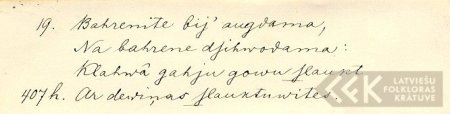 19. Bahrenite bij' augdama,
Na bahrene dsihwodama:
Klahwâ gahju gowu slaukt
407 h. Ar dewiņas slauktuwites.
LATVIEŠU
FOLKLORAS
KRĀTUVE